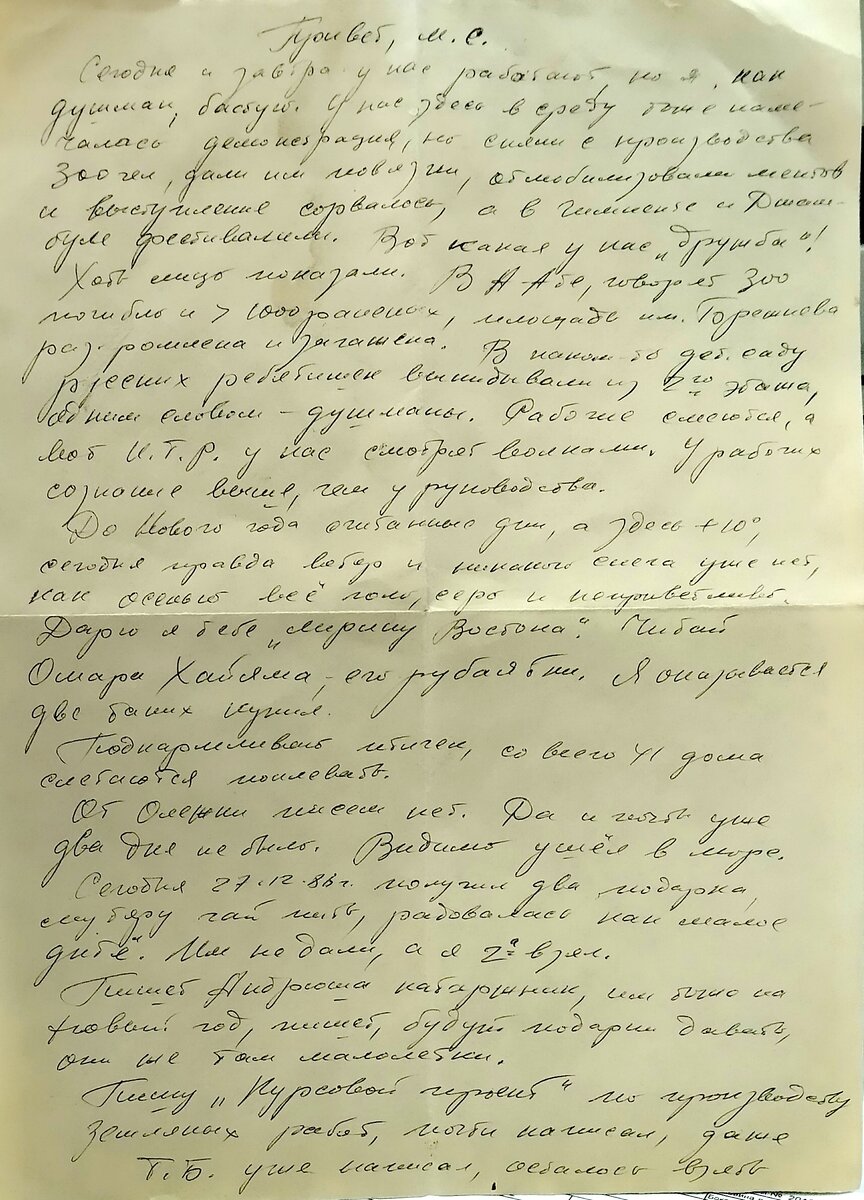 Привет, М.С.
Сегодня и завтра у нас работают, но я, как
душман, бастую. У нас здесь в среду тоже наме-
чалась демонстрация, но сняли с производства
300 чел, дали им повязки, отмобилизовали ментов
и выступление сорвалось, а в Чимкенте и Джам-
буле фестивалили. Вот какая у нас „дружба“!
Хоть лицо показали. В А-Ате, говорят 300
погибло и > 1000 раненых, площадь им. Брежнева
разгромлена и загажена. В каком-то дет. саду
русских ребятишек выкидывали из 2го этажа,
одним словом – душманы. Рабочие смеются, а
вот И.Т.Р. у нас смотрят волками. У рабочих
сознание выше, чем у руководства.
До Нового года считанные дни, а здесь +10°,
сегодня правда ветер и никакого снега уже нет,
как осенью всё голо, серо и неприветливо.
Дарю я тебе „Лирику Востока“. Читай
Омара Хайяма, его рубаятки. Я оказывается
две таких купил.
Подкармливаю птичек, со всего 41 дома
слетаются поклевать.
От Олежки писем нет. Да и почты уже
два дня не было. Видимо ушёл в море.
Сегодня 27.12.86г. получил два подарка,
чай пить, радовалась как малое
дитё“. Им не дали, а я 2а взял.
Пишет Андрюша каторжник, им тоже на
Новый год, пишет, будут подарки давать,
они же там малолетки.
Пишу „Курсовой проект“ по производству
земляных работ, почти написал, даже
Т.Б. уже написал, осталось взять